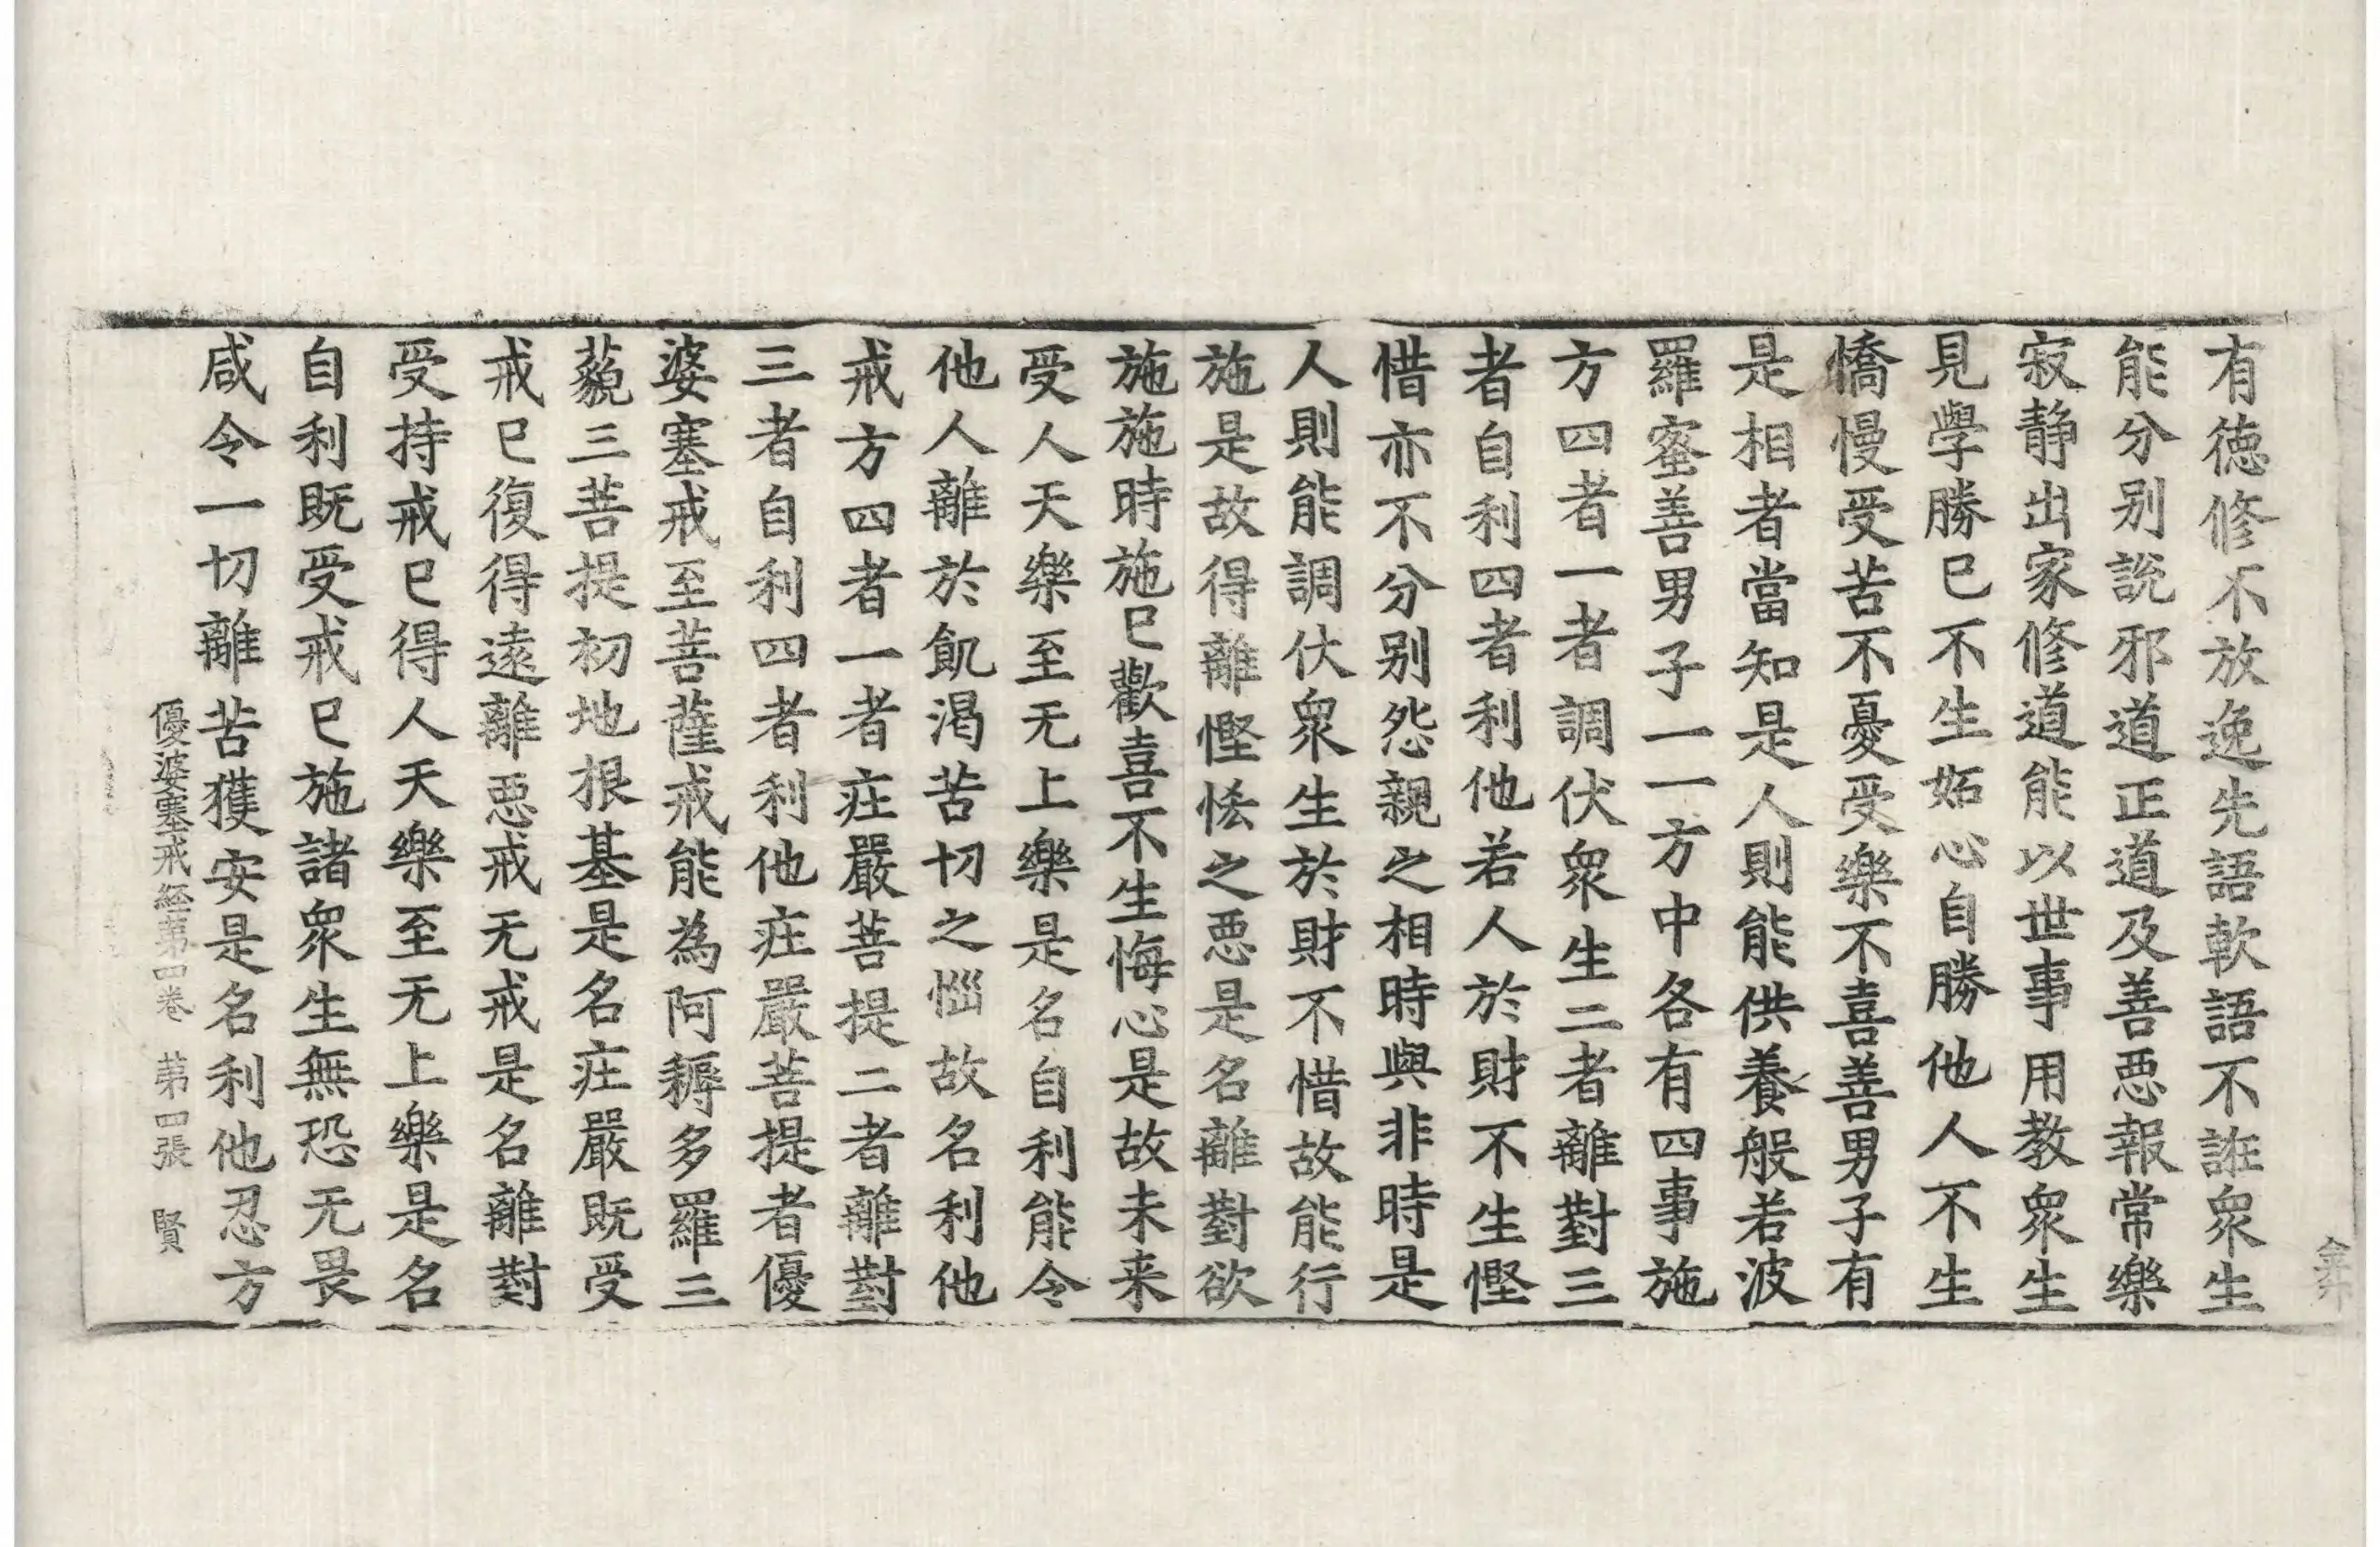 有徳修不放逸先語軟語不誑衆生
能分别說邪道正道及善惡報常樂
寂静出家修道能以世事用教衆生
見學勝已不生妬心自勝他人不生
憍慢受苦不憂受樂不喜善男子有
是相者當知是人則能供養般若波
羅蜜善男子一一方中各有四事施
方四者一者調伏衆生二者離對三
者自利四者利他若人於財不生慳
惜亦不分别怨親之相時與非時是
人則能調伏衆生於財不惜故能行
施是故得離慳悋之惡是名離對欲
施施時施已歡喜不生悔心是故未来
受人天樂至无上樂是名自利能令
他人離於飢渴苦切之惱故名利他
戒方四者一者庄嚴菩提二者離對
三者自利四者利他庄嚴菩提者優
婆塞戒至菩薩戒能為阿耨多羅三
藐三菩提初地根基是名庄嚴既受
戒已復得遠離惡戒无戒是名離對
受持戒已得人天樂至无上樂是名
自利既受戒已施諸衆生無恐无畏
咸令一切離苦獲安是名利他忍方
優婆塞戒経苐四卷 苐四張 賢